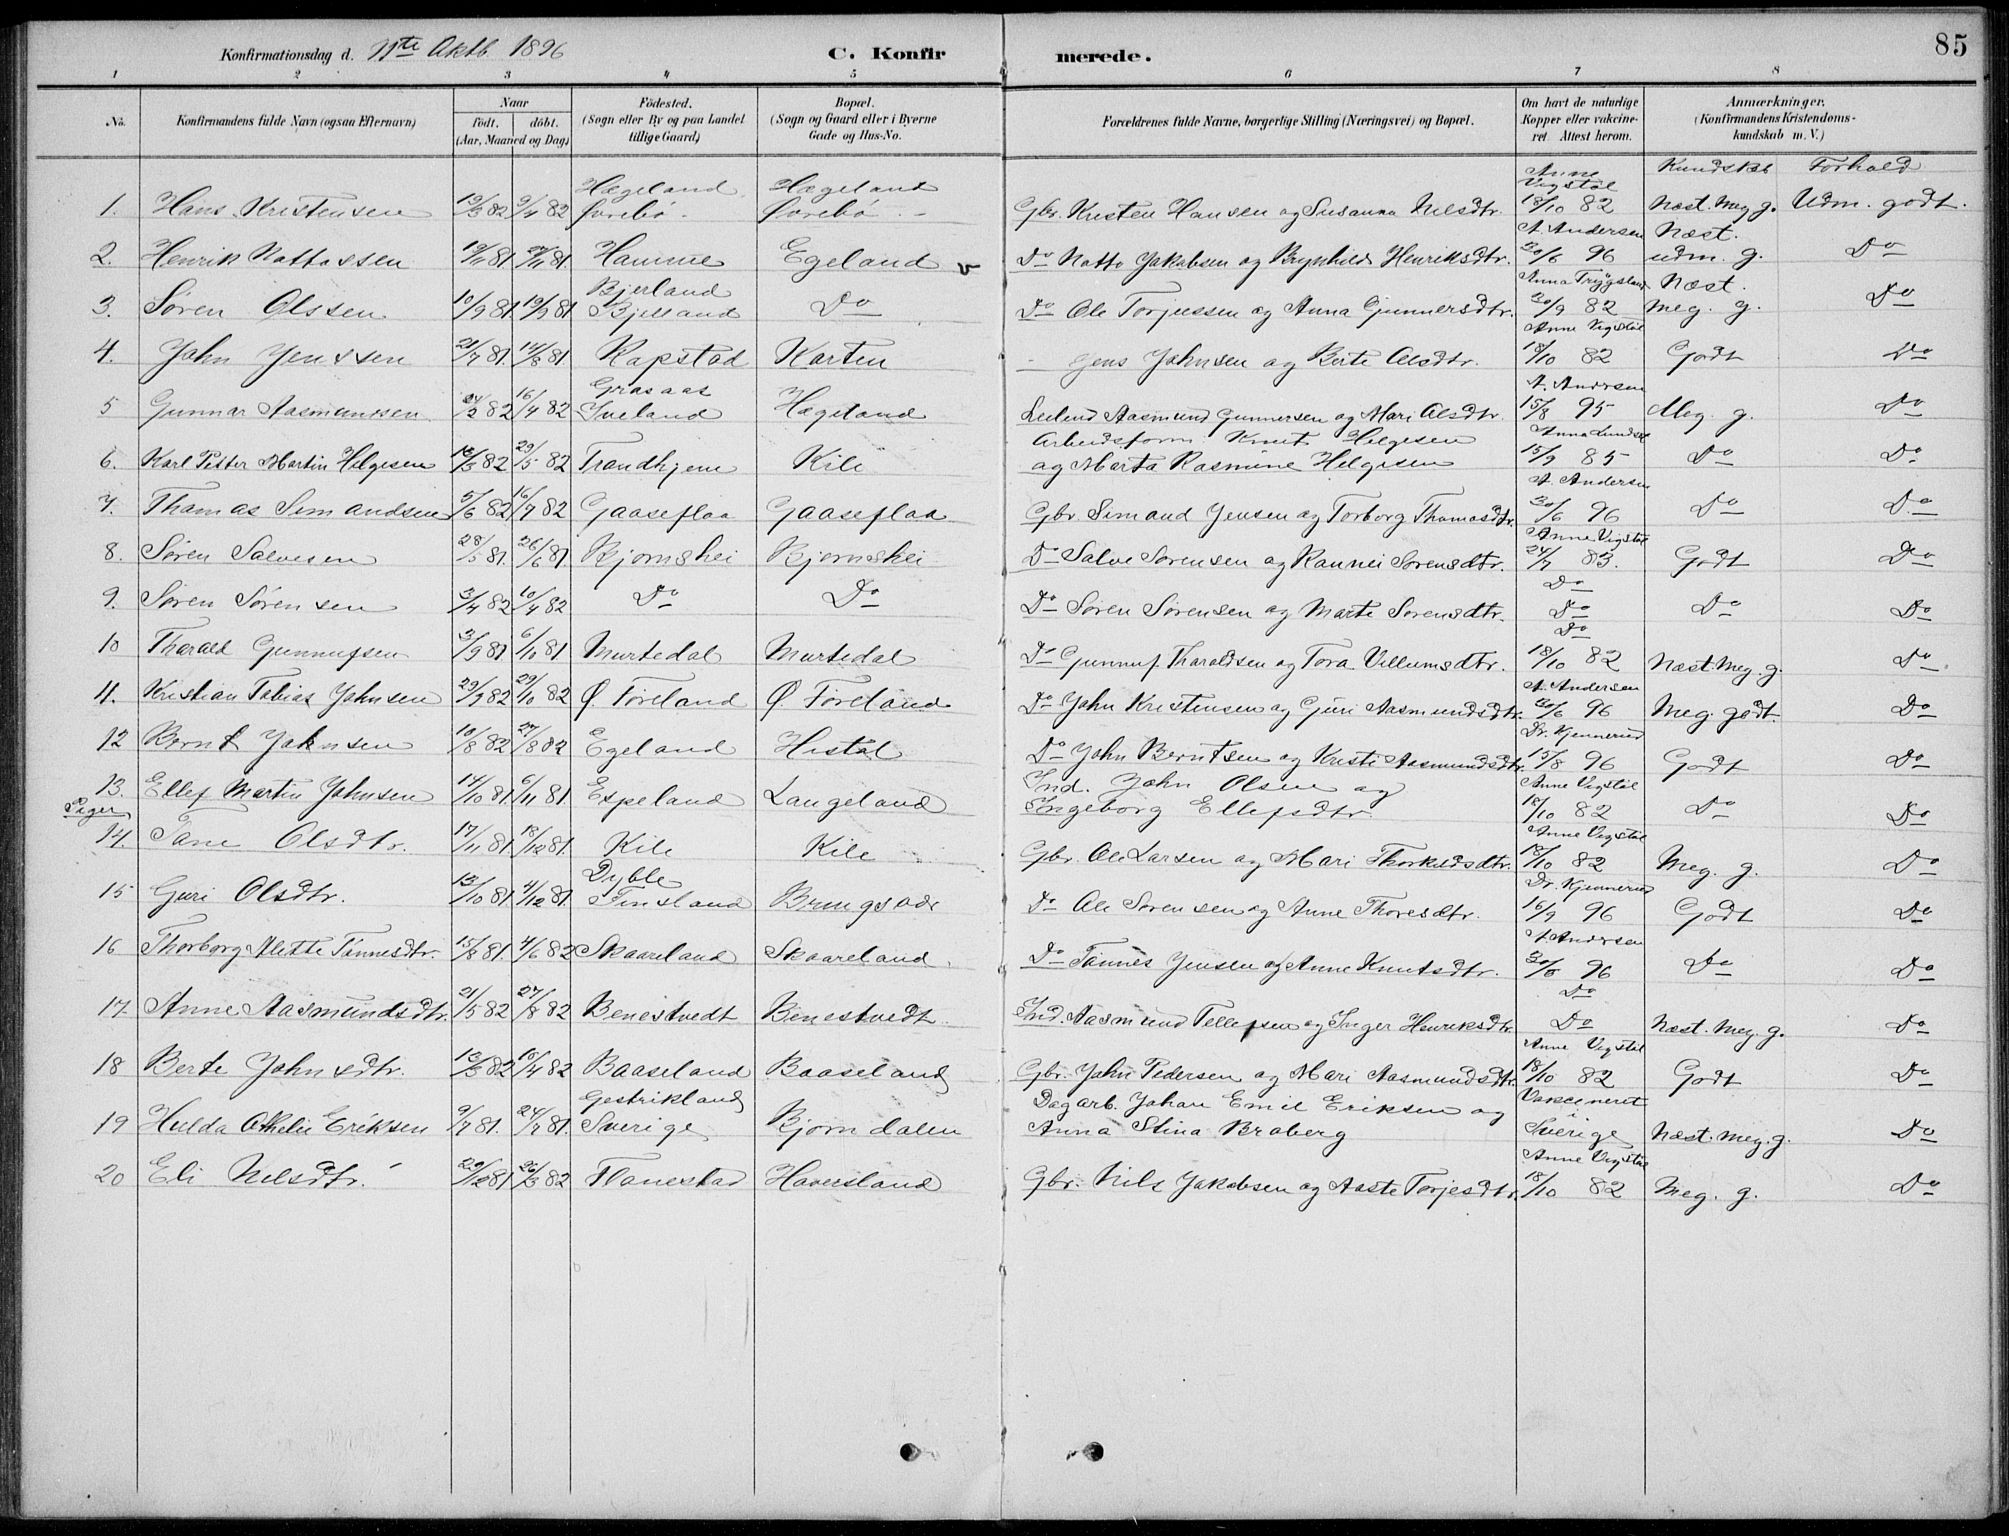 Konfirmationsdag d. 11te Oktb. 1896 C. Konfirmerede. 85
1 2 3 4 5 6 7 8
No. Konfirmandens fulde Navn (ogsaa Efternavn) Naar født. døbt. (Aar, Maaned og Dag) Födested. (Sogn eller By og paa Landet tillige Gaard) Bopæl. (Sogn og Gaard eller i Byerne Gade og Hus-No. Forældrenes fulde Navne, borgerlige Stilling (Næringsvei) og Bopæl. Om havt de naturlige Kopper eller vakcineret. Attest herom. Anmærkninger. (Konfirmandens Kristendomskundskab m. V.)
Kundskab Forhold
1. Hans Kristensen 19/3 82 9/4 82 Hægeland Øvrebø Hægeland Øvrebø Gbr. Kristen Hansen og Susanna Nilsdtr. Anne Vigstøl 18/10 82 Næst. Meg g. Udm. godt.
2. Henrik Nattossen 19/11 81 27/11 81. Homme Egeland Do Natto Jakobsen og Brynhild Henriksdtr. A. Andersen 30/6 96 Næst. udm. g. Do
3. Søren Olssen 10/9 81. 19/9 81 Bjerland Bjelland Do Do Ole Torjussen og Anna Gunnersdtr. Anna Trygsland 30/9 82 Næst. meg. g. Do
4. John Jenssen 21/7 81. 14/8 81. Rapstad Karten Jens Johnsen og Berte Olsdtr. Anne Vigstøl 18/10 82 Godt Do
5 Gunnar Aasmundsen 24/2 82 16/4 82 Grosaas Iveland Hægeland Leilend. Aasmund Gunnersen og Mari Olsdtr. A. Andersen 15/8 95 Meg. g. Do
6. Karl Petter Martin Helgesen 16/3 82 29/5 82 Trondhjem Kile Arbeidsform. Knut Helgesen og Marta Rasmine Helgesen Anna Lundsel 15/9 85 Do Do
7. Thomas Simondsen 5/6 82 16/7 82 Gaaseflaa Gaaseflaa Gbr. Simond Jensen og Torborg Thomasdtr. A. Andersen 30/6 96 Do Do
8. Søren Salvesen 28/5 81. 26/6 81 Bjornshei Bjornshei Do Salve Sorensen og Rannei Sorensdtr. Anne Vigstøl 24/7 83. Godt Do
9. Søren Sörensen 3/4 82 10/4 82 Do Do Do Søren Sørensen og Marte Sorensdtr. Do Do Do Do
10 Tharald Gunnufsen 3/9 81 6/10 81 Murtedal Murtedal Do Gunnuf Tharaldsen og Tora Villumsdtr. Do 18/10 82 Næst. Meg. g. Do
11. Kristian Tobias Johnsen 29/9 82 29/10 82 Ø Foreland Ø Foreland Do John Kristensen og Guri Aasmundsdtr. A. Andersen 30/6 96 Meg. godt Do
12 Bernt Johnsen 10/8 82 27/8 82 Egeland Histøl Do John Berntsen og Kristi Aasmundsdtr. Dr. Kjennerud 15/8 96 Godt Do
13. Ellef Martin Johnsen 14/10 81 6/11 81. Espeland Langeland Ind. John Olsen og Ingeborg Ellefsdtr. Anne Vigstøl 18/10 82 Do Do
Piger
14. Tone Olsdtr. 17/11 81 18/12 81. Kile Kile Gbr. Ole Larsen og Mari Thorkildsdtr. Anne Vigstøl 18/10 82 Meg. g. Do
15 Guri Olsdtr. 13/10 81 4/12 81. Dyble Finsland Bringsvær Do Ole Sorensen og Anne Thoresdtr. Dr. Kjennerud 16/9 96 Godt Do
16 Thorborg Mette Tønnesdtr. 15/8 81. 4/6 82 Skaareland Skaareland Do Tønnes Jensen og Anne Knutsdtr. A Andersen 30/6 96 Do Do
17. Anne Aasmundsdtr. 21/5 82 27/8 82 Benestvedt Benestvedt Ind. Aasmund Tellefsen og Inger Henriksdtr. Do Do Næst. Meg. g. Do
18 Berte Johnsdtr. 13/3 82 10/4 82 Baaseland Baaseland Gbr. John Pedersen og Mari Aasmundsdtr. Anne Vigstøl 18/10 82 Godt Do
19 Hulda Othelie Eriksen 9/7 81. 24/7 81. Gestrikland Sverige Bjorndalen Dagarb. Johan Emil Eriksen og Anna Stina Broberg Vakcineret i Sverige Næst. Meg. g. Do
20 Eli Nelsdtr. 29/12 81 26/3 82 Flonestad Haversland Gbr. Nils Jakobsen og Aaste Torjesdtr. Anne Vigstøl 18/10 82 Meg. g. Do